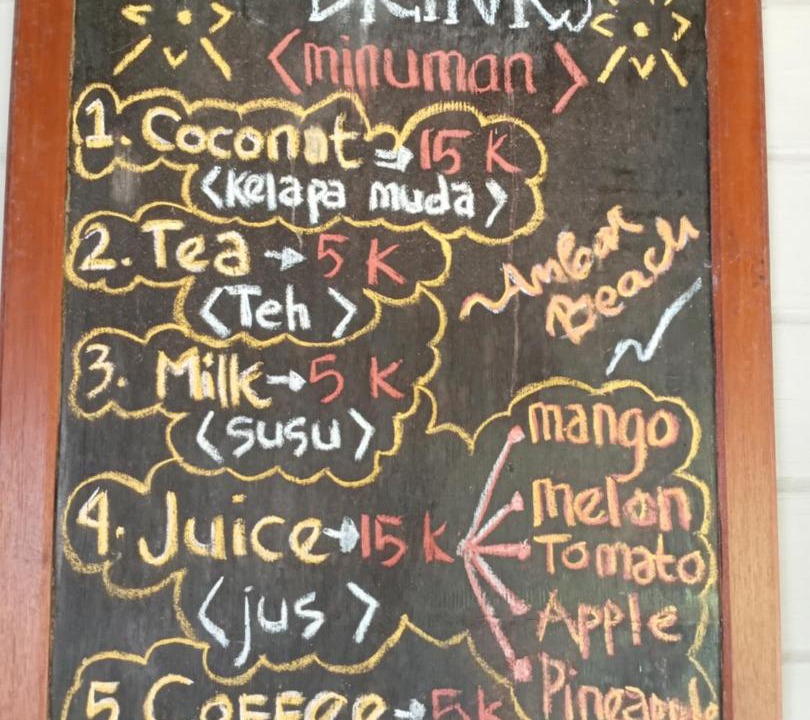 DRINKS
<minuman>
1. Coconut → 15 K
<Kelapa muda>
2. Tea → 5 K
<Teh>
Ambor
Beach
3. Milk → 5 K
<susu>
4. Juice → 15 K
<jus>
mango
Melon
Tomato
Apple
Pineapple
5. COFFee → 5k